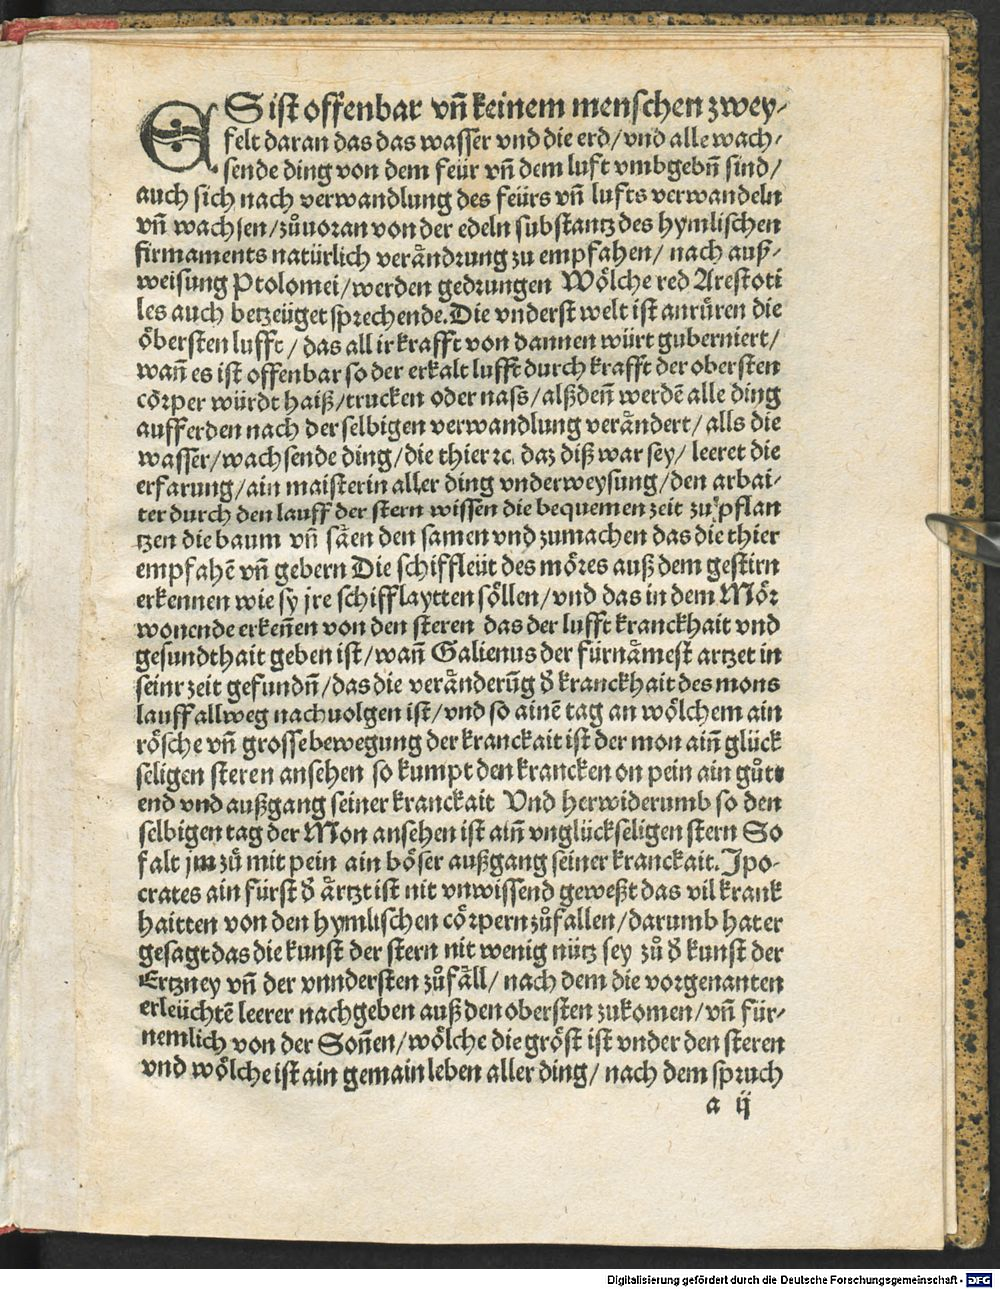 ES ist offenbar vn̄ keinem menschen zwey-
felt daran das das wasser vnd die erd/vnd alle wach-
sende ding von dem feür vn̄ dem luft vmbgebn̄ sind/
auch sich nach verwandlung des feürs vn̄ lufts verwandeln
vn̄ wachsen/zůuoran von der edeln substantz des hymlischen
firmaments natürlich veråndrung zu empfahen/ nach auß-
weisung Ptolomei/werden gedrungen Wölche red Arestoti
les auch betzeüget sprechende. Die vnderst welt ist anrůren die
öbersten lufft/ das all ir krafft von dannen würt guberniert/
wan̄ es ist offenbar so der erkalt lufft durch krafft der obersten
cörper würdt haiß/trucken oder nass/alßden̄ werdē alle ding
auff erden nach der selbigen verwandlung verändert/ alls die
wasser/wachsende ding/die thier ꝛc. daz diß war sey/ leeret die
erfarung/ain maisterin aller ding vnderweysung/den arbai-
ter durch den lauff der stern wissen die bequemen zeit zůpflan
tzen die baum vn̄ såen den samen vnd zumachen das die thier
empfahē vn̄ gebern Die schiffleüt des möres auß dem gestirn
erkennen wie sy jre schiff laytten söllen/vnd das in dem Mör
wonende erken̄en von den steren das der lufft kranckhait vnd
gesundthait geben ist/wan̄ Galienus der fürnåmest artzet in
seinr zeit gefundn̄/das die verånderūg d̕ kranckhait des mons
lauff allweg nachuolgen ist/vnd so ainē tag an wölchem ain
rösche vn̄ grosse bewegung der kranckait ist der mon ain̄ glück
seligen steren ansehen so kumpt den krancken on pein ain gůts
end vnd außgang seiner kranckait Vnd herwiderumb so den
selbigen tag der Mon ansehen ist ain̄ vnglückseligen stern So
falt jm zů mit pein ain böser außgang seiner kranckait. Ipo-
crates ain fürst d̕ årtzt ist nit vnwissend geweßt das vil krank
haitten von den hymlischen cörpern zůfallen/darumb hat er
gesagt das die kunst der stern nit wenig nütz sey zů d̕ kunst der
Ertzney vn̄ der vnndersten zůfåll/ nach dem die vorgenanten
erleüchtē leerer nachgeben auß den obersten zukomen/vn̄ für-
nemlich von der Son̄en/wölche die gröst ist vnder den steren
vnd wölche ist ain gemain leben aller ding/ nach dem spruch
a ij
Digitalisierung gefördert durch die Deutsche Forschungsgemeinschaft - DFG